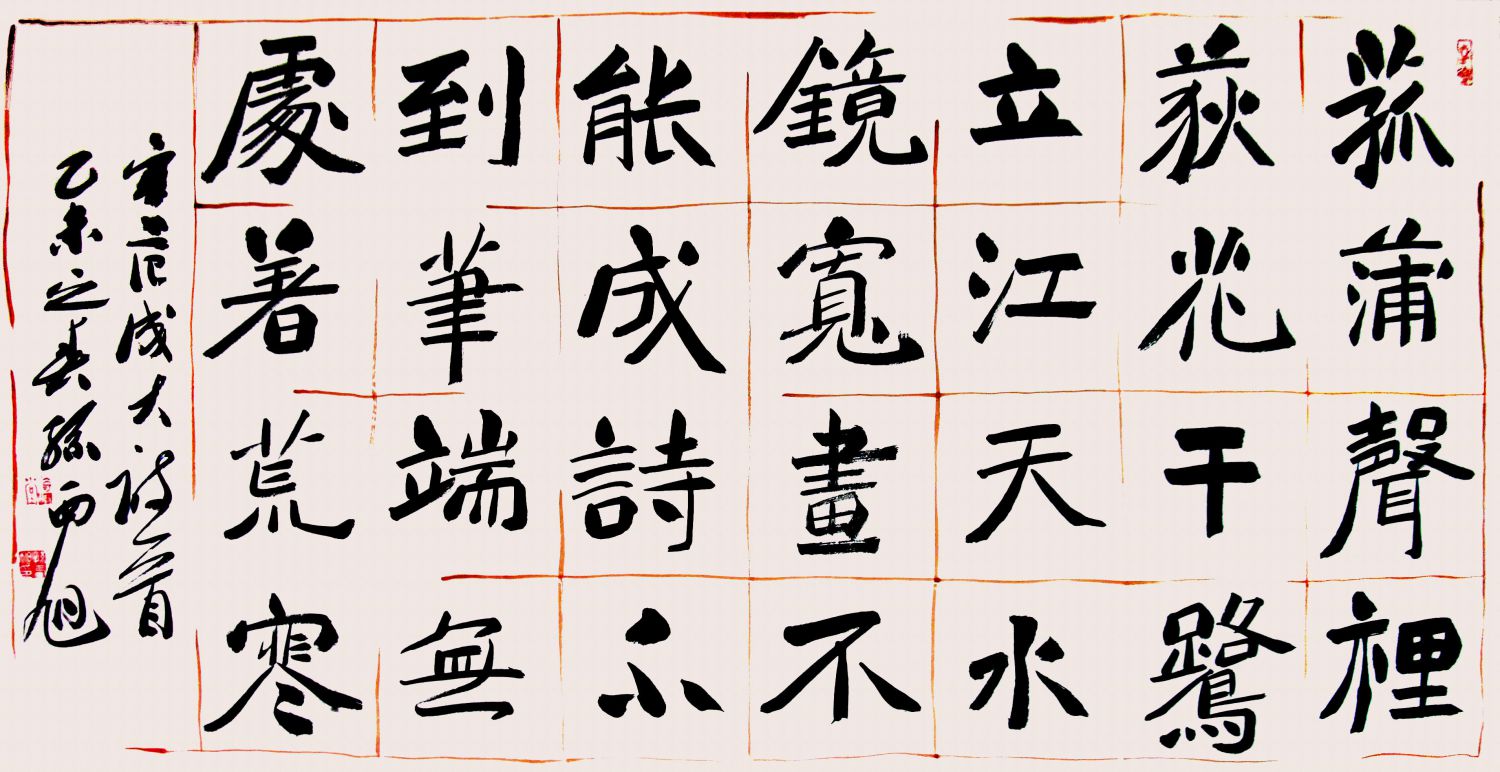 菰蒲聲裡
荻花干鷺
立江天水
鏡寬畫不
能成詩不
到筆端無
處著荒寒
宋范成大詩一首
乙未之春孫旭